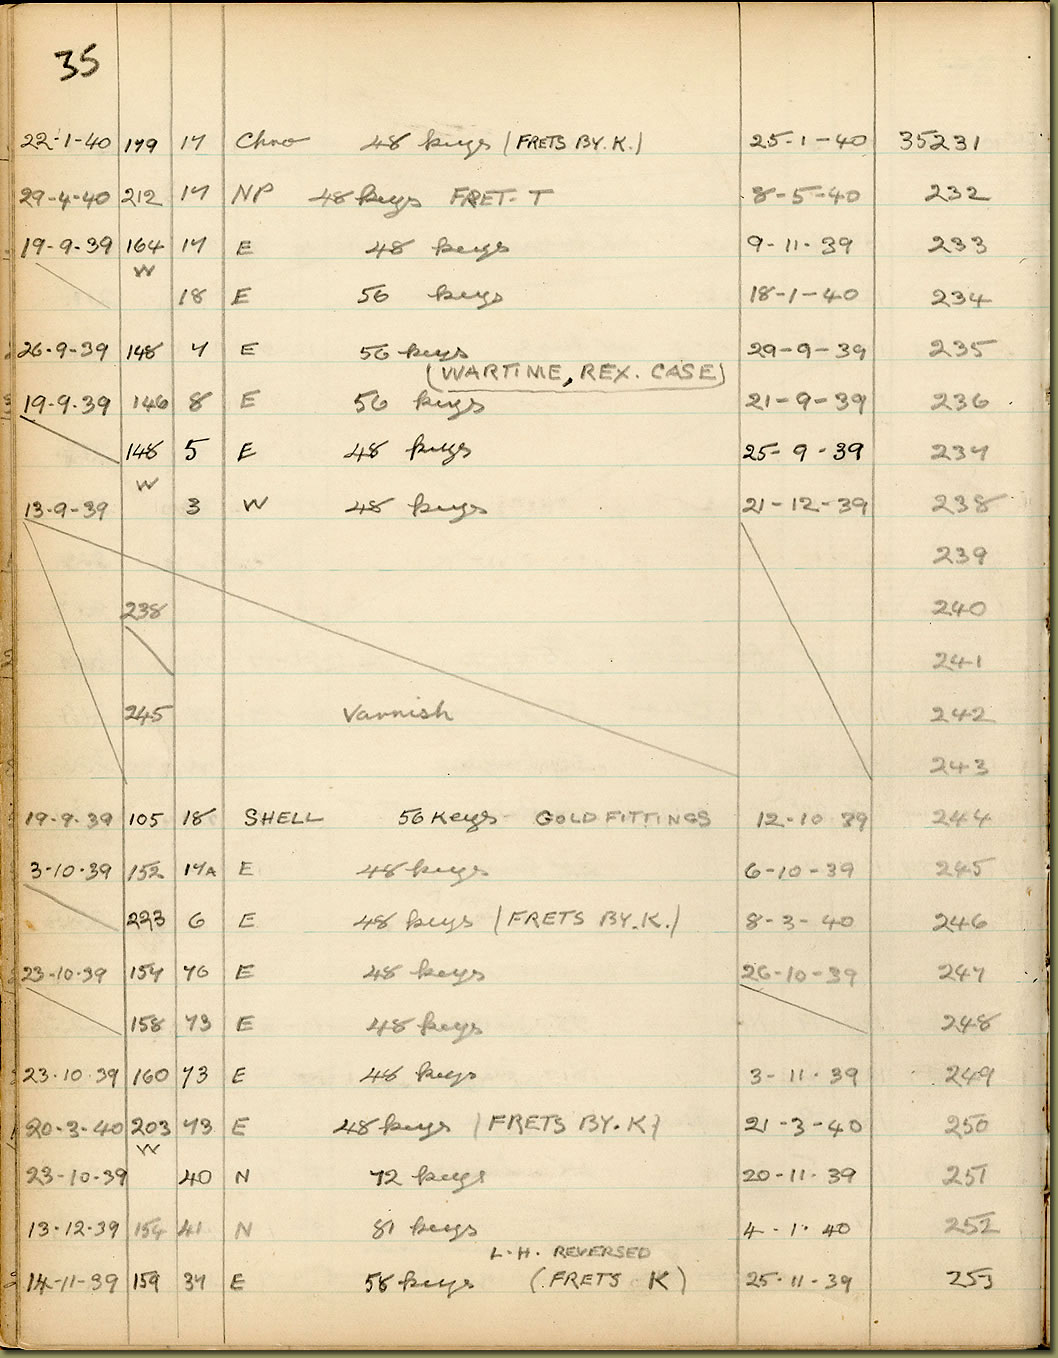 35
22-1-40 179 17 Chro 48 keys (FRETS BY. K.) 25-1-40 35231
29-4-40 212 17 NP 48 keys FRET-T 8-5-40 232
19-9-39 164 17 E 48 keys 9-11-39 233
W
18 E 56 keys 18-1-40 234
26-9-39 148 7 E 56 keys 29-9-39 235
(WARTIME, REX. CASE)
19-9-39 146 8 E 56 keys 21-9-39 236
148 5 E 48 keys 25-9-39 237
W
13-9-39 3 W 48 keys 21-12-39 238
239
238 240
241
245 Varnish 242
243
19-9-39 105 18 SHELL 56 Keys GOLD FITTINGS 12-10 39 244
3-10-39 152 17A E 48 keys 6-10-39 245
6 E 48 keys (FRETS BY. K.) 8-3-40 246
23-10-39 157 76 E 48 keys 26-10-39 247
158 73 E 48 keys 248
23-10-39 160 73 E 48 keys 3-11-39 249
20-3-40 203 73 E 48 keys (FRETS BY. K) 21-3-40 250
W
23-10-39 40 N 72 keys 20-11-39 251
13-12-39 154 41 N 81 keys 4-1-40 252
L.H. REVERSED
14-11-39 159 37 E 58 keys (FRETS K) 25-11-39 253